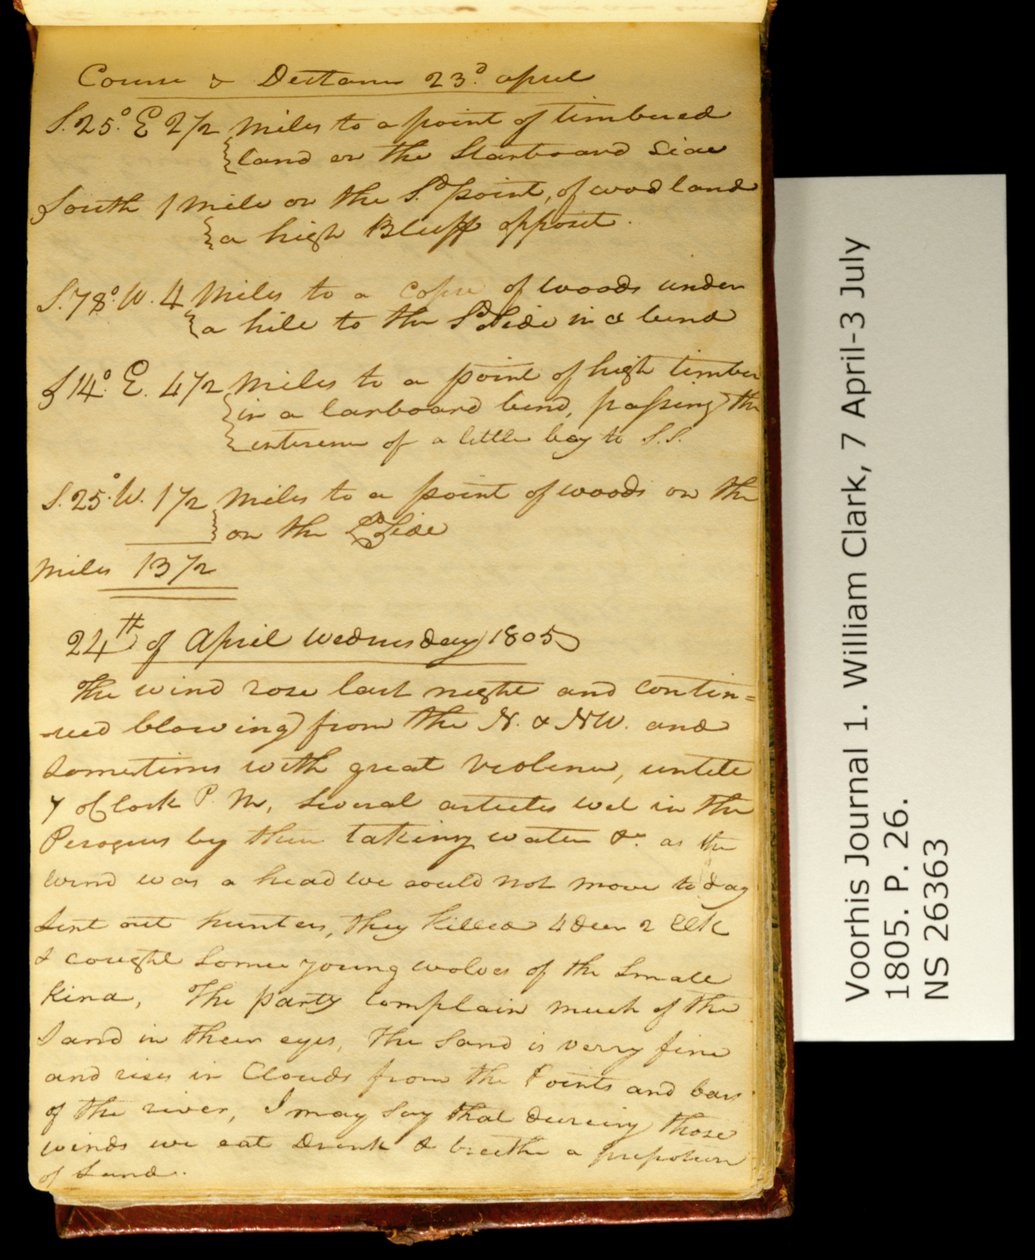 Course & Distance 23d. April
S. 25°. E 2 1/2 Miles to a point of timbered
land on the Starboard Side
South 1 Mile on the Sd. point, of wood land
a high Bluff opposit.
S. 78°. W. 4 Miles to a copse of woods under
a hill to the Sd. Side in a bend
S 14°. E. 4 1/2 Miles to a point of high timber
in a larboard bend, passing the
of a little bay to S.S.
S. 25°. W. 1 1/2 Miles to a point of woods on the
on the Ld. Side
Miles 13 1/2
24th of April Wednesday 1805
The wind rose last night and contin=
-ued blowing from the N. & NW. and
Sometimes with great violence, untill
7 oClock P. M, Several articles wet in the
Perogues by their takeing water &c. as the
wind was a head we could not move to day
Sent out hunters, they killed 4 Deer 2 Elk
& cought Some young wolves of the Small
kind, The party complain much of the
Sand in their eyes, the Sand is verry fine
and rises in Clouds from the Points and bars
of the river, I may Say that dureing those
winds we eat Drink & breethe a prepotion
of Sand.
Voorhis Journal 1. William Clark, 7 April-3 July
1805. P. 26.
NS 26363